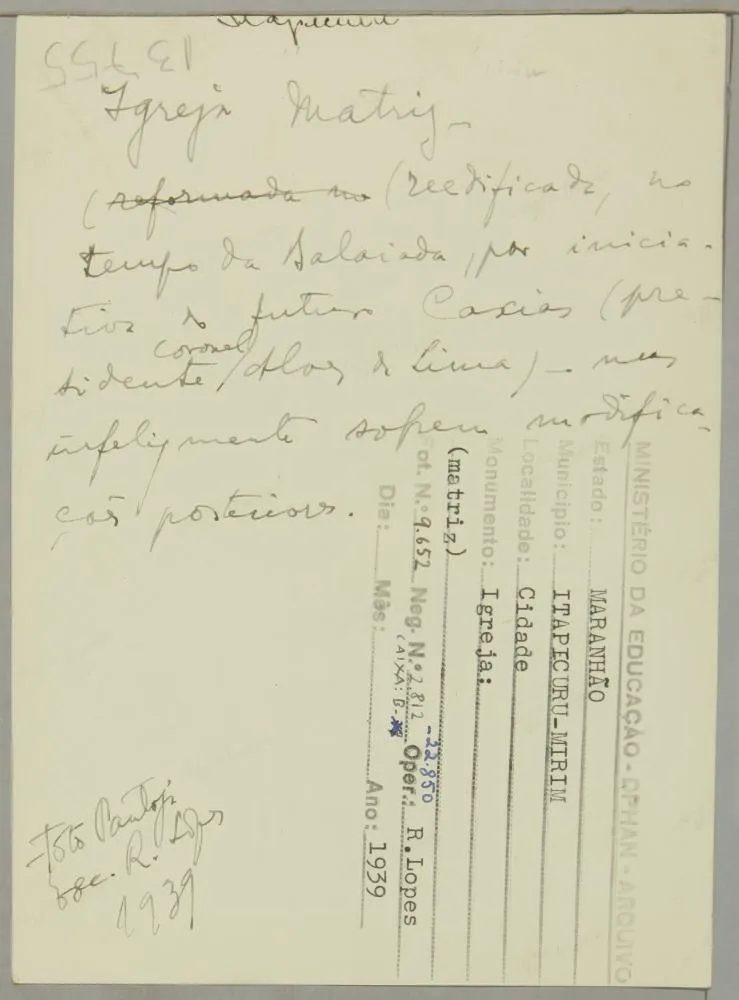 Itapicuru
13755
Igreja Matriz -
(reformada no (reedificada, no
tempo da Balaiada, por inicia-
tiva do futuro Caxias (pre-
sidente, coronel Alves de Lima) - mas
infelizmente sofreu modifica-
ções posteriores.
MINISTÉRIO DA EDUCAÇÃO - DPHAN - ARQUIVO
Estado: MARANHÃO
Município: ITAPECURU-MIRIM
Localidade: Cidade
Monumento: Igreja:
(matriz)
Fot. N.º 9.652 Neg. N.º 2.812 - 22.850 Oper.: R.Lopes
CAIXA: B-
Dia: Mês: Ano: 1939
Foto Pantoja
R. Lopes
1939